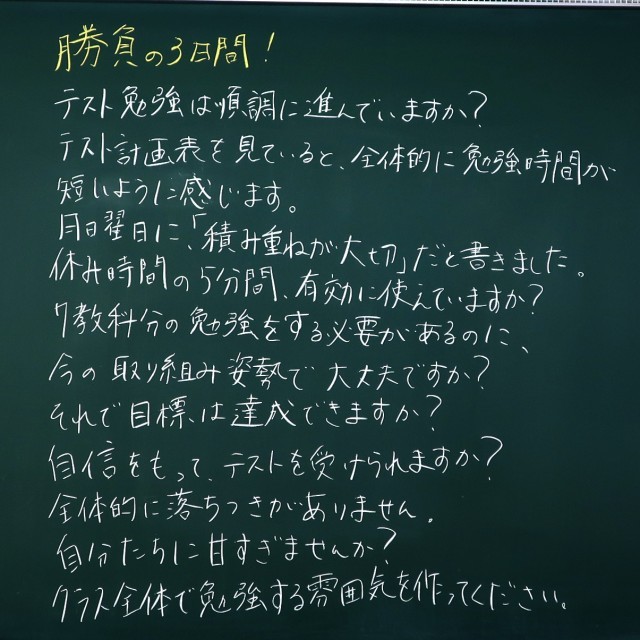 勝負の3日間!
テスト勉強は順調に進んでいますか?
テスト計画表を見ていると、全体的に勉強時間が
短いように感じます。
月曜日に、「積み重ねが大切」だと書きました。
休み時間の5分間、有効に使えていますか?
7教科分の勉強をする必要があるのに、
今の取り組み姿勢で大丈夫ですか?
それで目標は達成できますか?
自信をもって、テストを受けられますか?
全体的に落ちつきがありません。
自分たちに甘すぎませんか?
クラス全体で勉強する雰囲気を作ってください。